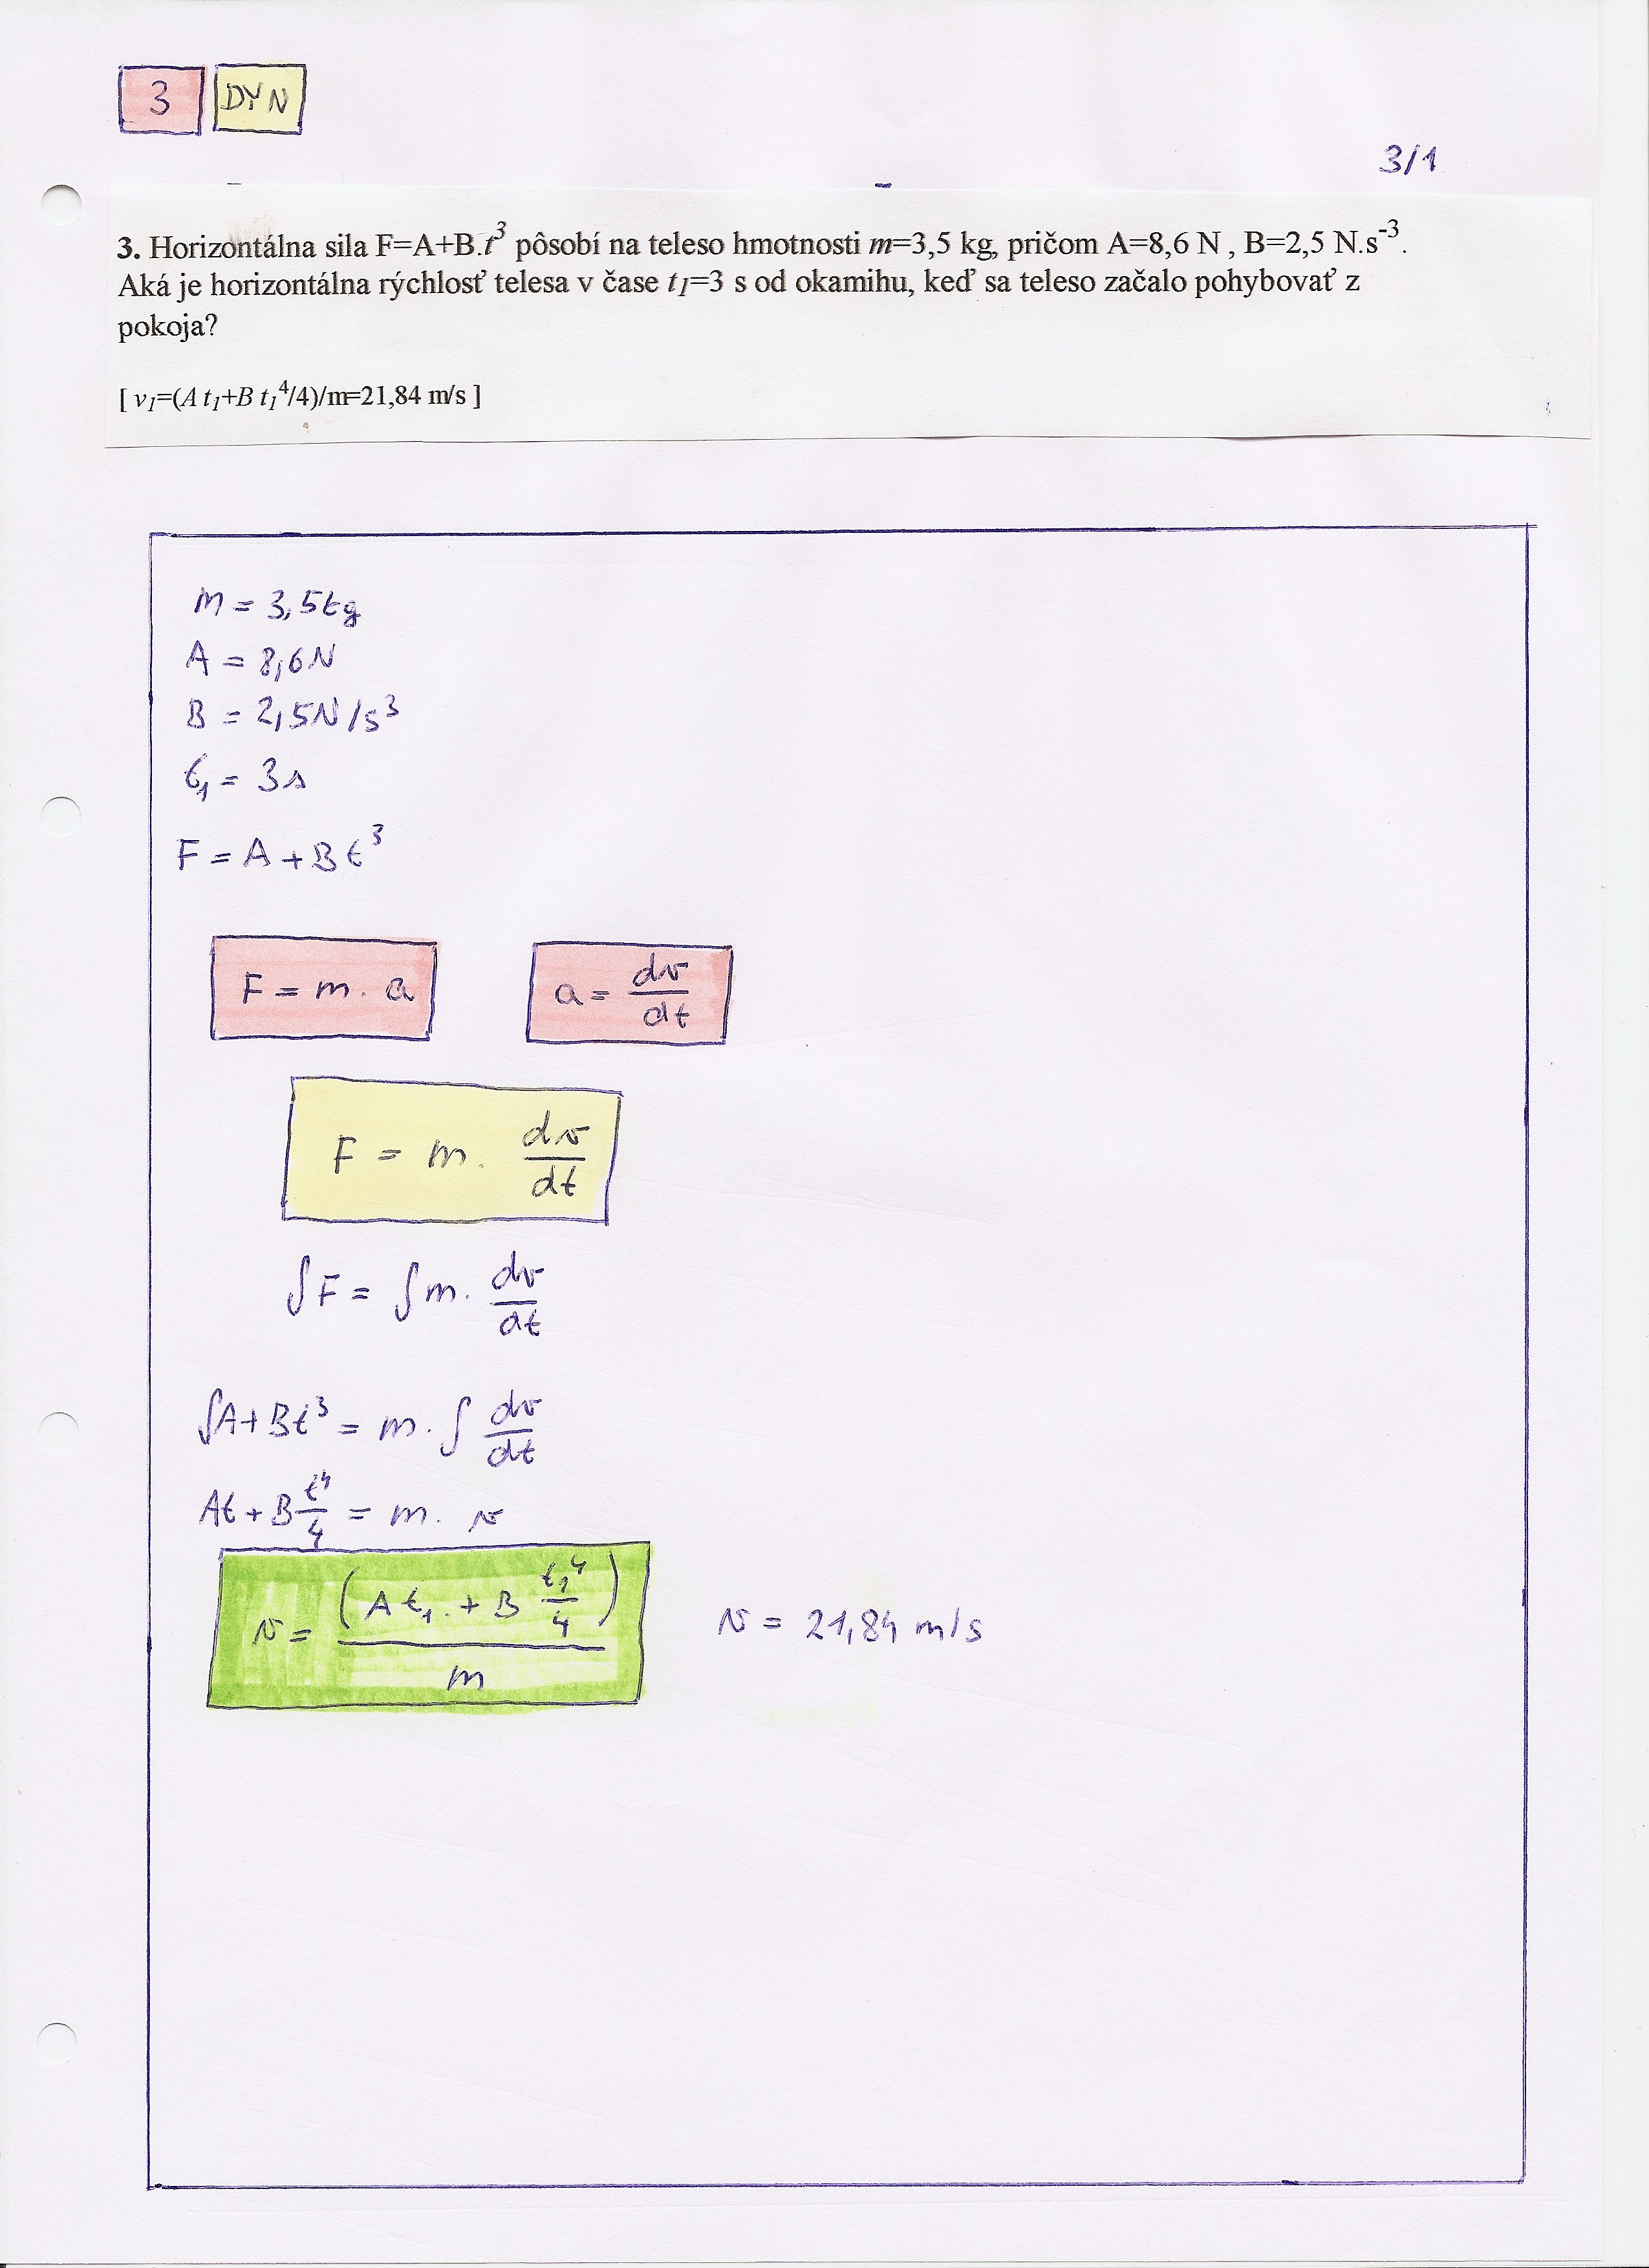 3 DYN
3/1
3. Horizontálna sila F=A+B.t³ pôsobí na teleso hmotnosti m=3,5 kg, pričom A=8,6 N , B=2,5 N.s⁻³.
Aká je horizontálna rýchlosť telesa v čase t₁=3 s od okamihu, keď sa teleso začalo pohybovať z
pokoja?
[ v₁=(A t₁+B t₁⁴/4)/m=21,84 m/s ]
m = 3,5kg
A = 8,6N
B = 2,5N/s³
t₁ = 3s
F = A + Bt³
F = m. a   a = dv/dt
F = m. dv/dt
∫F = ∫m. dv/dt
∫A+Bt³ = m. ∫ dv/dt
At + B t⁴/4 = m. v
v = (At₁. + B t₁⁴/4)/m   v = 21,84 m/s